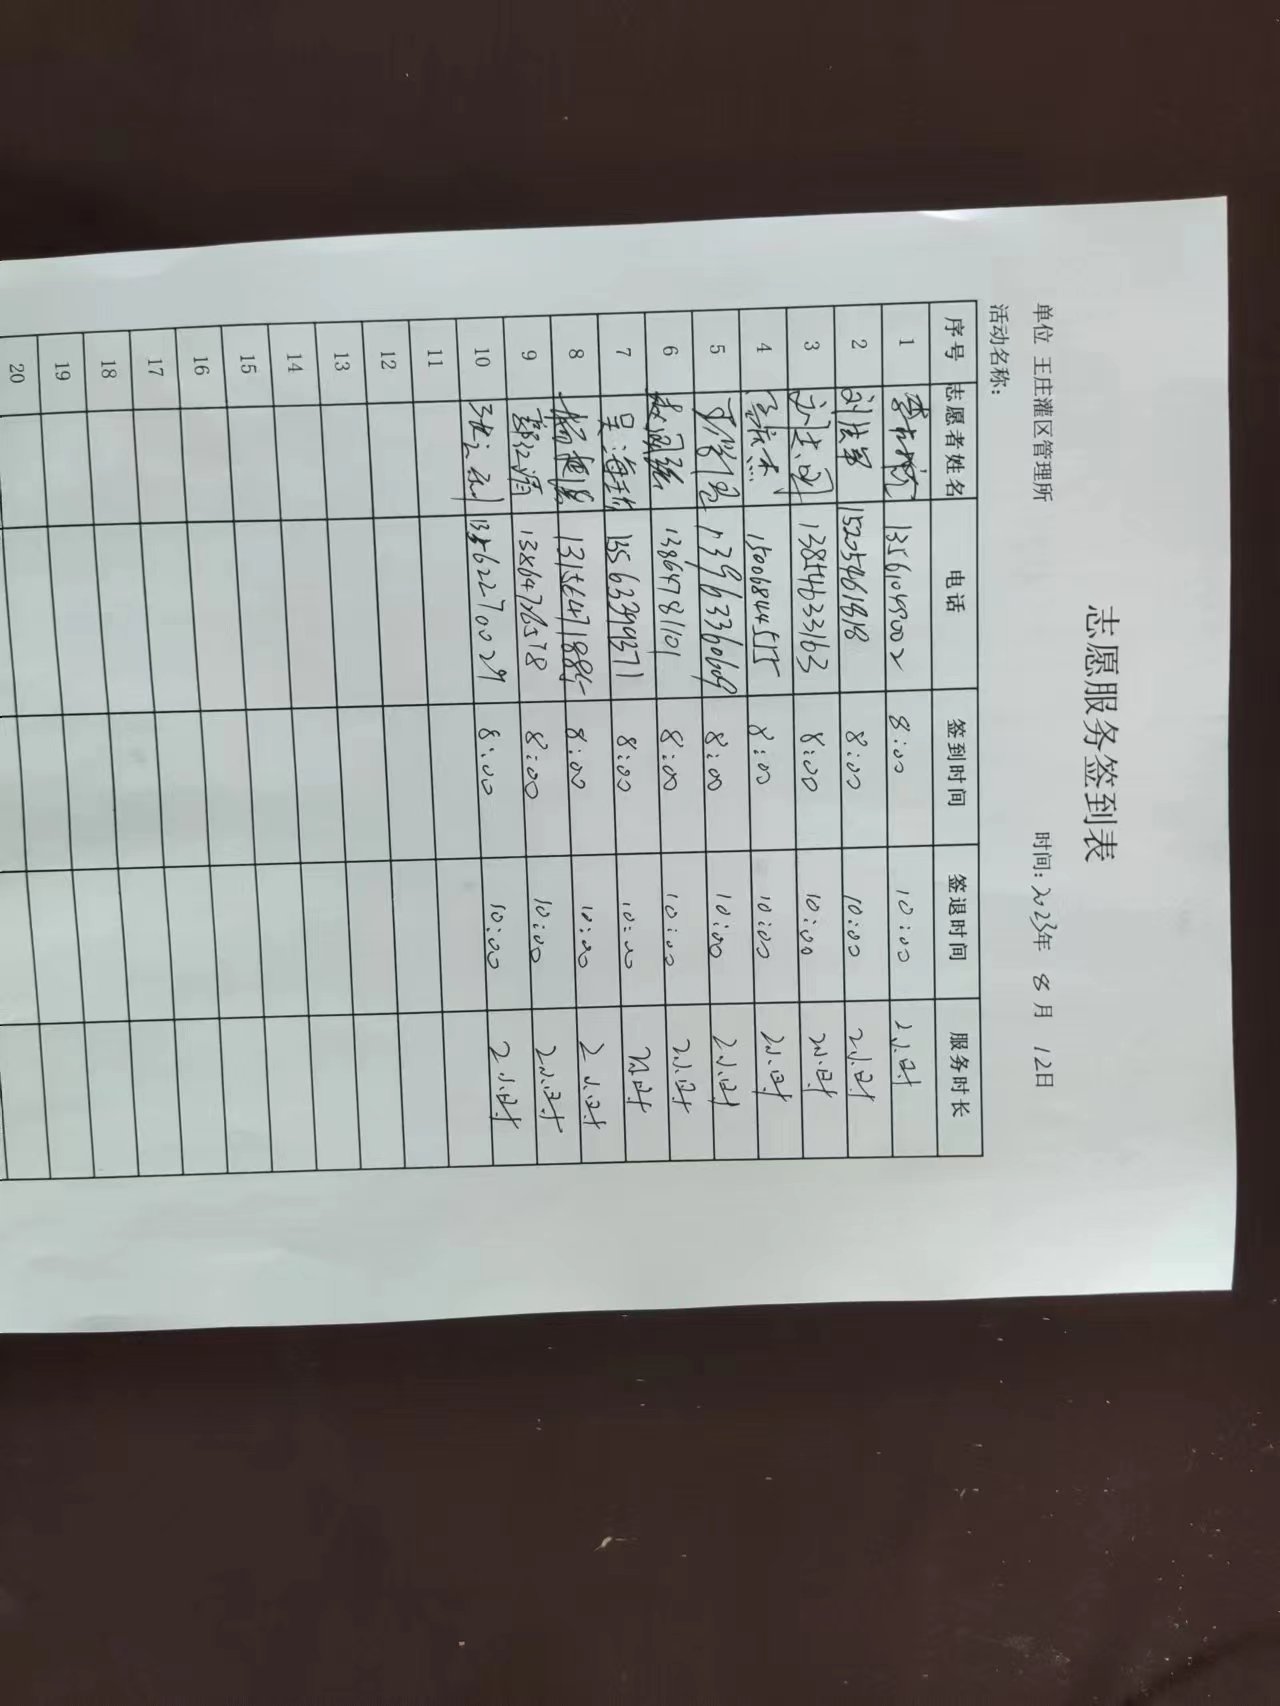 志愿服务签到表
单位 王庄灌区管理所 时间：2023年 8月 12日
活动名称：
序号 志愿者姓名 电话 签到时间 签退时间 服务时长
1 8:00 10:00 2小时
2 15205461818 8:00 10:00 2小时
3 13854633163 8:00 10:00 2小时
4 15006844515 8:00 10:00 2小时
5 13963360609 8:00 10:00 2小时
6 13864781101 8:00 10:00 2小时
7 吴海珍 13563399371 8:00 10:00 2小时
8 8:00 10:00 2小时
9 13864776578 8:00 10:00 2小时
10 13562270029 8:00 10:00 2小时
11
12
13
14
15
16
17
18
19
20